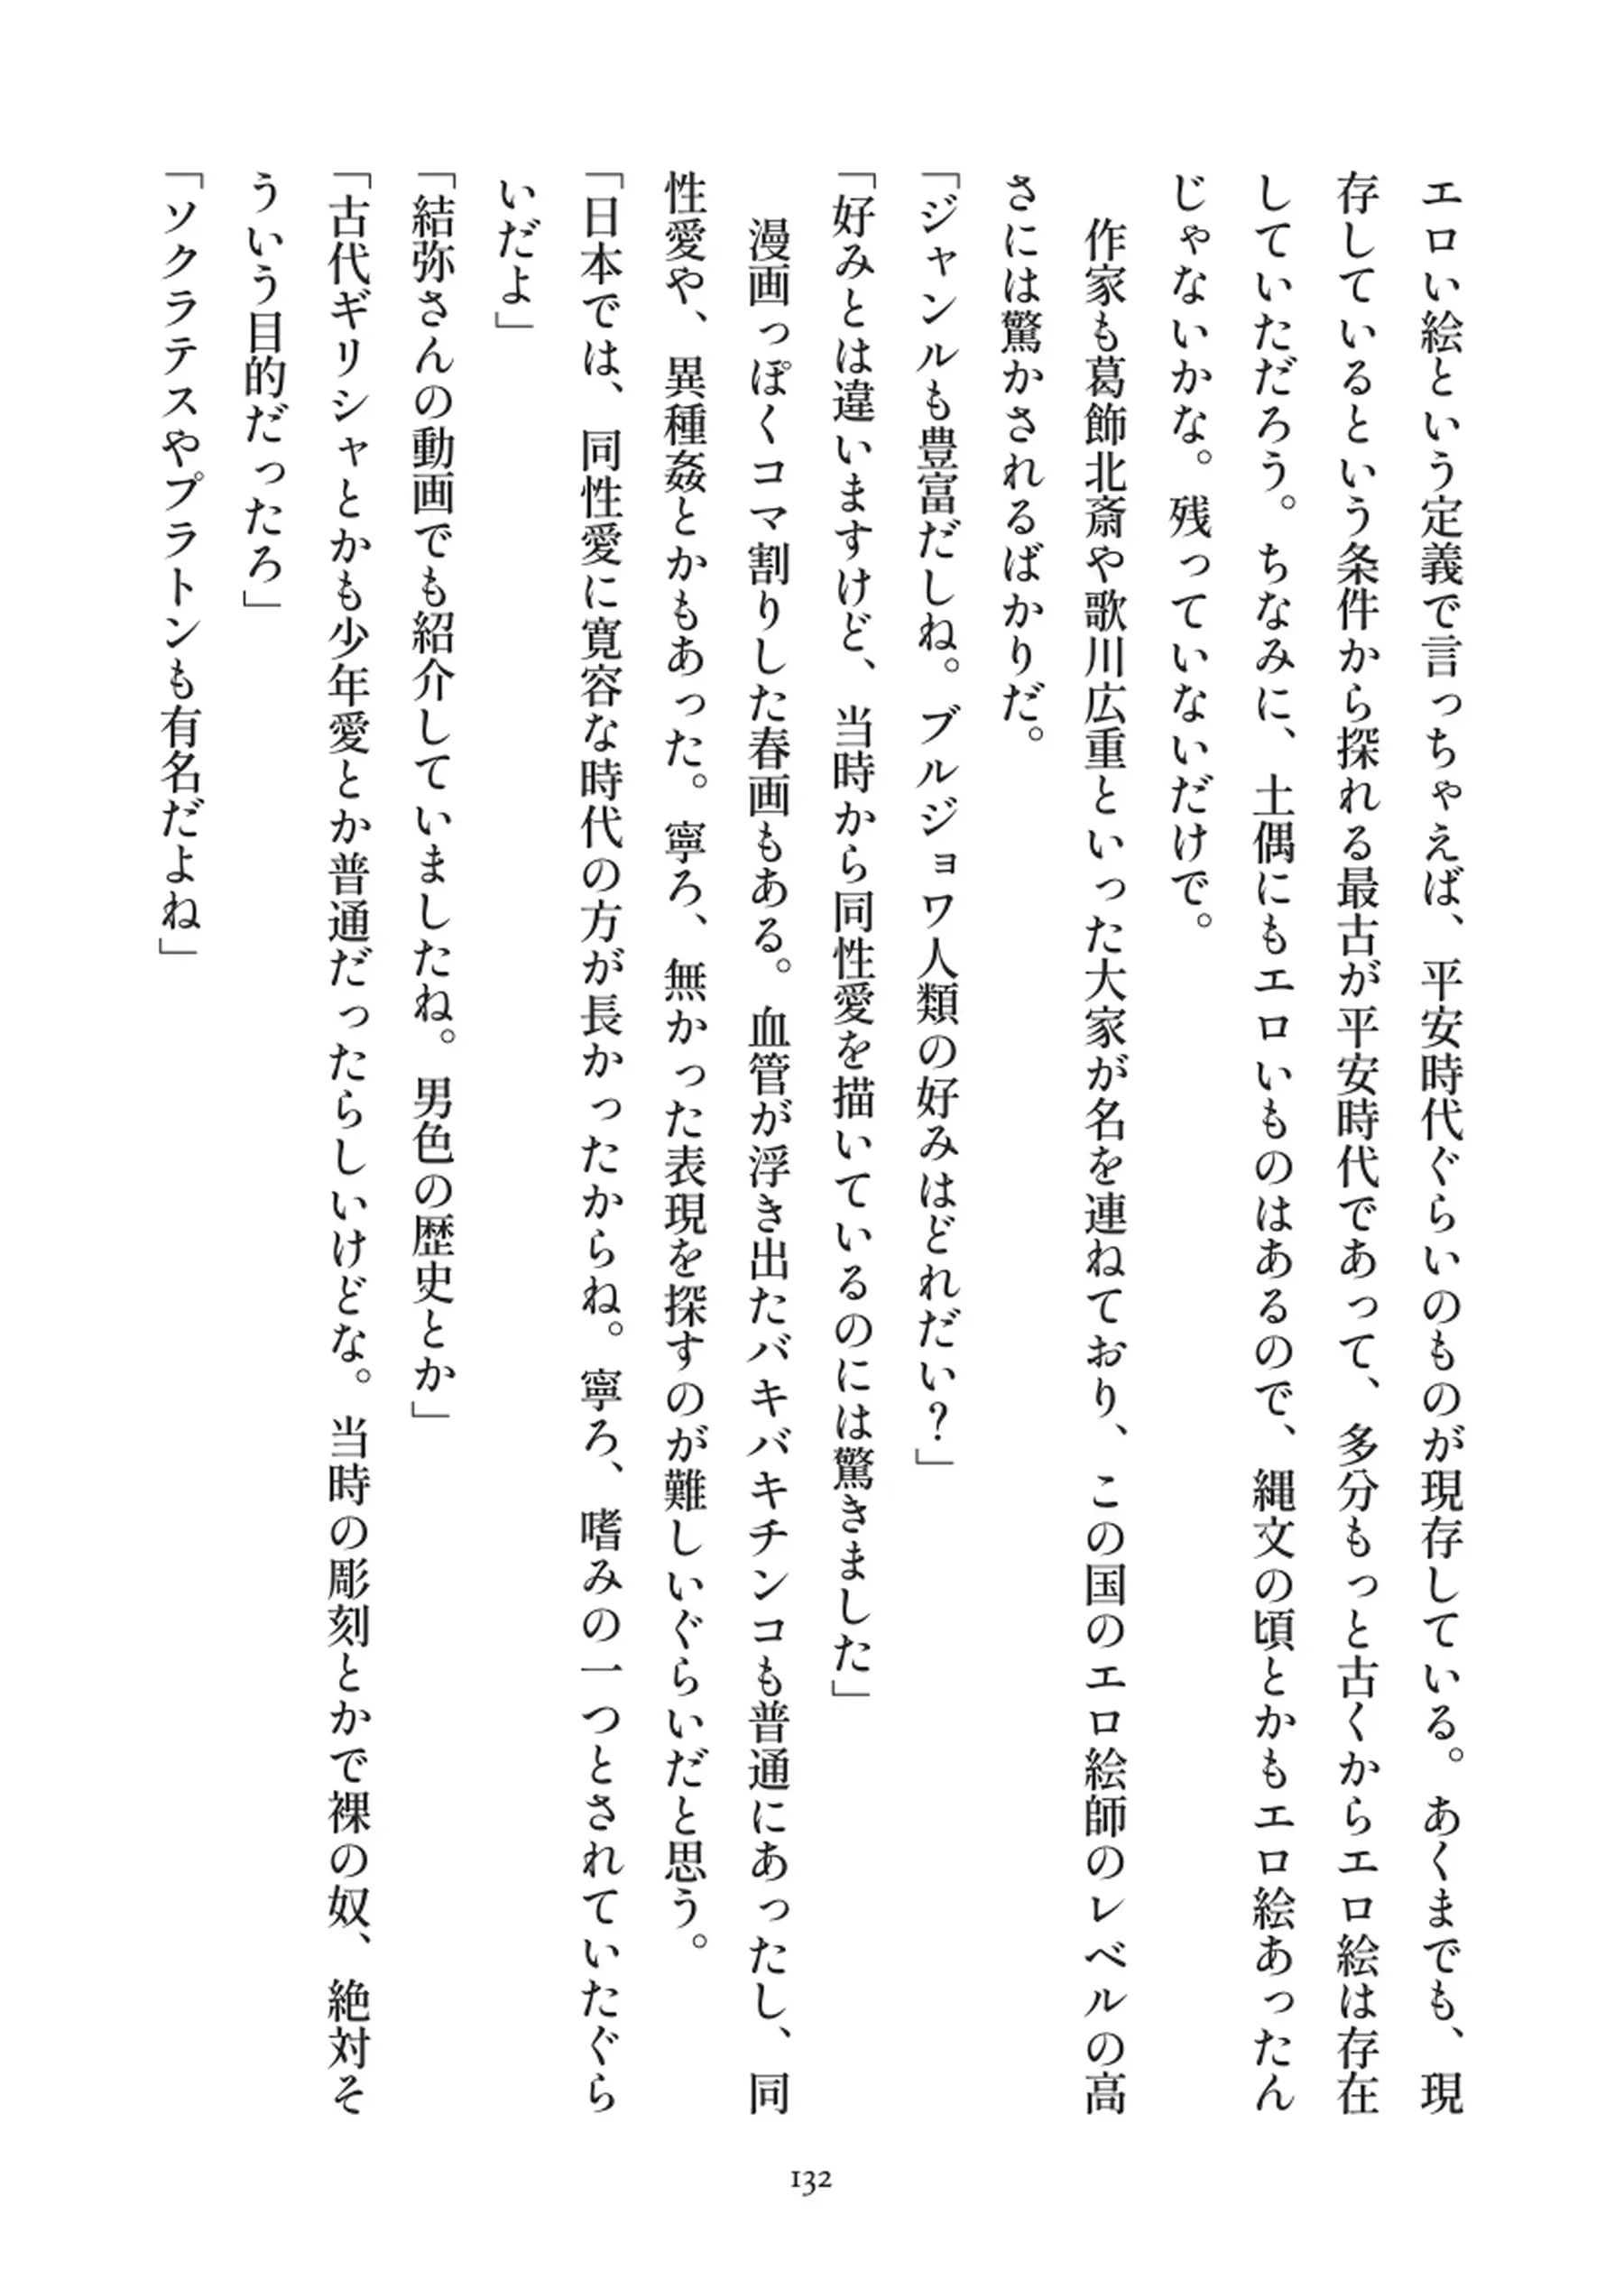 エロい絵という定義で言っちゃえば、平安時代ぐらいのものが現存している。あくまでも、現
存しているという条件から探れる最古が平安時代であって、多分もっと古くからエロ絵は存在
していただろう。ちなみに、土偶にもエロいものはあるので、縄文の頃とかもエロ絵あったん
じゃないかな。残っていないだけで。
作家も葛飾北斎や歌川広重といった大家が名を連ねており、この国のエロ絵師のレベルの高
さには驚かされるばかりだ。
「ジャンルも豊富だしね。ブルジョワ人類の好みはどれだい？」
「好みとは違いますけど、当時から同性愛を描いているのには驚きました」
漫画っぽくコマ割りした春画もある。血管が浮き出たバキバキチンコも普通にあったし、同
性愛や、異種姦とかもあった。寧ろ、無かった表現を探すのが難しいぐらいだと思う。
「日本では、同性愛に寛容な時代の方が長かったからね。寧ろ、嗜みの一つとされていたぐら
いだよ」
「結弥さんの動画でも紹介していましたね。男色の歴史とか」
「古代ギリシャとかも少年愛とか普通だったらしいけどな。当時の彫刻とかで裸の奴、絶対そ
ういう目的だったろ」
「ソクラテスやプラトンも有名だよね」
132